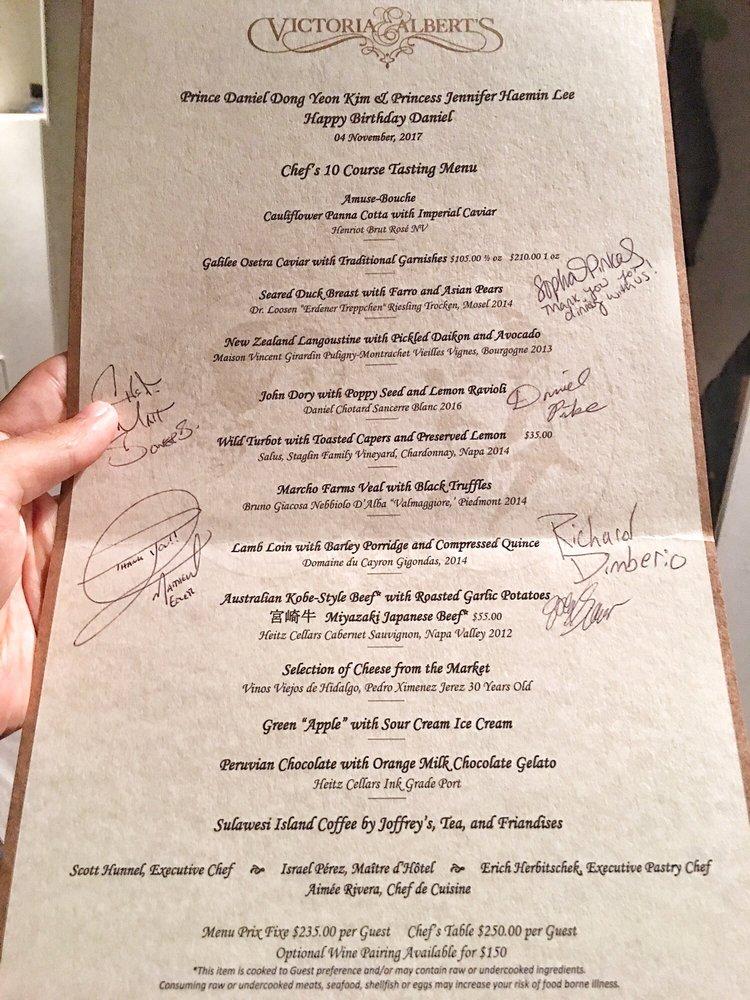 VICTORIA & ALBERT'S
Prince Daniel Dong Yeon Kim & Princess Jennifer Haemin Lee
Happy Birthday Daniel
04 November, 2017
Chef's 10 Course Tasting Menu
Amuse-Bouche
Cauliflower Panna Cotta with Imperial Caviar
Henriot Brut Rosé NV
Galilee Osetra Caviar with Traditional Garnishes $105.00 ½ oz $210.00 1 oz
Thank you for
dining with us!
Seared Duck Breast with Farro and Asian Pears
Dr. Loosen "Erdener Treppchen" Riesling Trocken, Mosel 2014
New Zealand Langoustine with Pickled Daikon and Avocado
Maison Vincent Girardin Puligny-Montrachet Vieilles Vignes, Bourgogne 2013
Chef
Matt
Sowers.
John Dory with Poppy Seed and Lemon Ravioli
Daniel Chotard Sancerre Blanc 2016
Daniel
Pike
Wild Turbot with Toasted Capers and Preserved Lemon $35.00
Salus, Staglin Family Vineyard, Chardonnay, Napa 2014
Marcho Farms Veal with Black Truffles
Bruno Giacosa Nebbiolo D'Alba "Valmaggiore,' Piedmont 2014
Thank You!!
Lamb Loin with Barley Porridge and Compressed Quince
Domaine du Cayron Gigondas, 2014
Richard
Dimberio
Australian Kobe-Style Beef* with Roasted Garlic Potatoes
宮崎牛 Miyazaki Japanese Beef* $55.00
Heitz Cellars Cabernet Sauvignon, Napa Valley 2012
Selection of Cheese from the Market
Vinos Viejos de Hidalgo, Pedro Ximenez Jerez 30 Years Old
Green "Apple" with Sour Cream Ice Cream
Peruvian Chocolate with Orange Milk Chocolate Gelato
Heitz Cellars Ink Grade Port
Sulawesi Island Coffee by Joffrey's, Tea, and Friandises
Scott Hunnel, Executive Chef Israel Pérez, Maître d'Hôtel Erich Herbitschek, Executive Pastry Chef
Aimée Rivera, Chef de Cuisine
Menu Prix Fixe $235.00 per Guest Chef's Table $250.00 per Guest
Optional Wine Pairing Available for $150
*This item is cooked to Guest preference and/or may contain raw or undercooked ingredients.
Consuming raw or undercooked meats, seafood, shellfish or eggs may increase your risk of food borne illness.